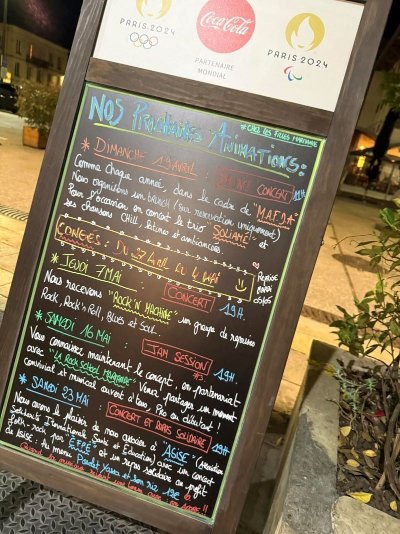 PARIS 2024
Coca-Cola
PARTENAIRE
MONDIAL
PARIS 2024
NOS PROCHAINES ANIMATIONS:
* CHEZ LES FILLES
* DIMANCHE 19 AVRIL: CONCERT 11H
Comme chaque année dans le cadre de "M.A.F.9*"
Nous organisons un BRUNCH (sur réservation uniquement)
Pour l'occasion on convie le trio SOLIANE et
ses chansons CHILL, latines et
CONGÉS: DU 27 Avril AU 4 MAI
Reprise
MARDI
05/05
* JEUDI 7 MAI: CONCERT 19H.
Nous recevons "ROCK'N MACHINE", un groupe de reprises
Rock, Rock'n Roll, Blues et Soul.
* SAMEDI 16 MAI JAM SESSION 19H.
#3
Vous connaissez maintenant le concept, en partenariat
avec "LA ROCK SCHOOL Venez partager un moment
convivial et musical ouvert à tous, Pro ou débutant!
* SAMEDI 23 MAI CONCERT ET REPAS SOLIDAIRE 19H
Nous avons le plaisir de nous associer à "AGISE" (Association
Solidarité Internationale Santé et Éducation) avec un concert
folk-rock par "EFFE" et un repas solidaire au profit
de l'AGISE: menu Poulet Yassa et son riz 19€